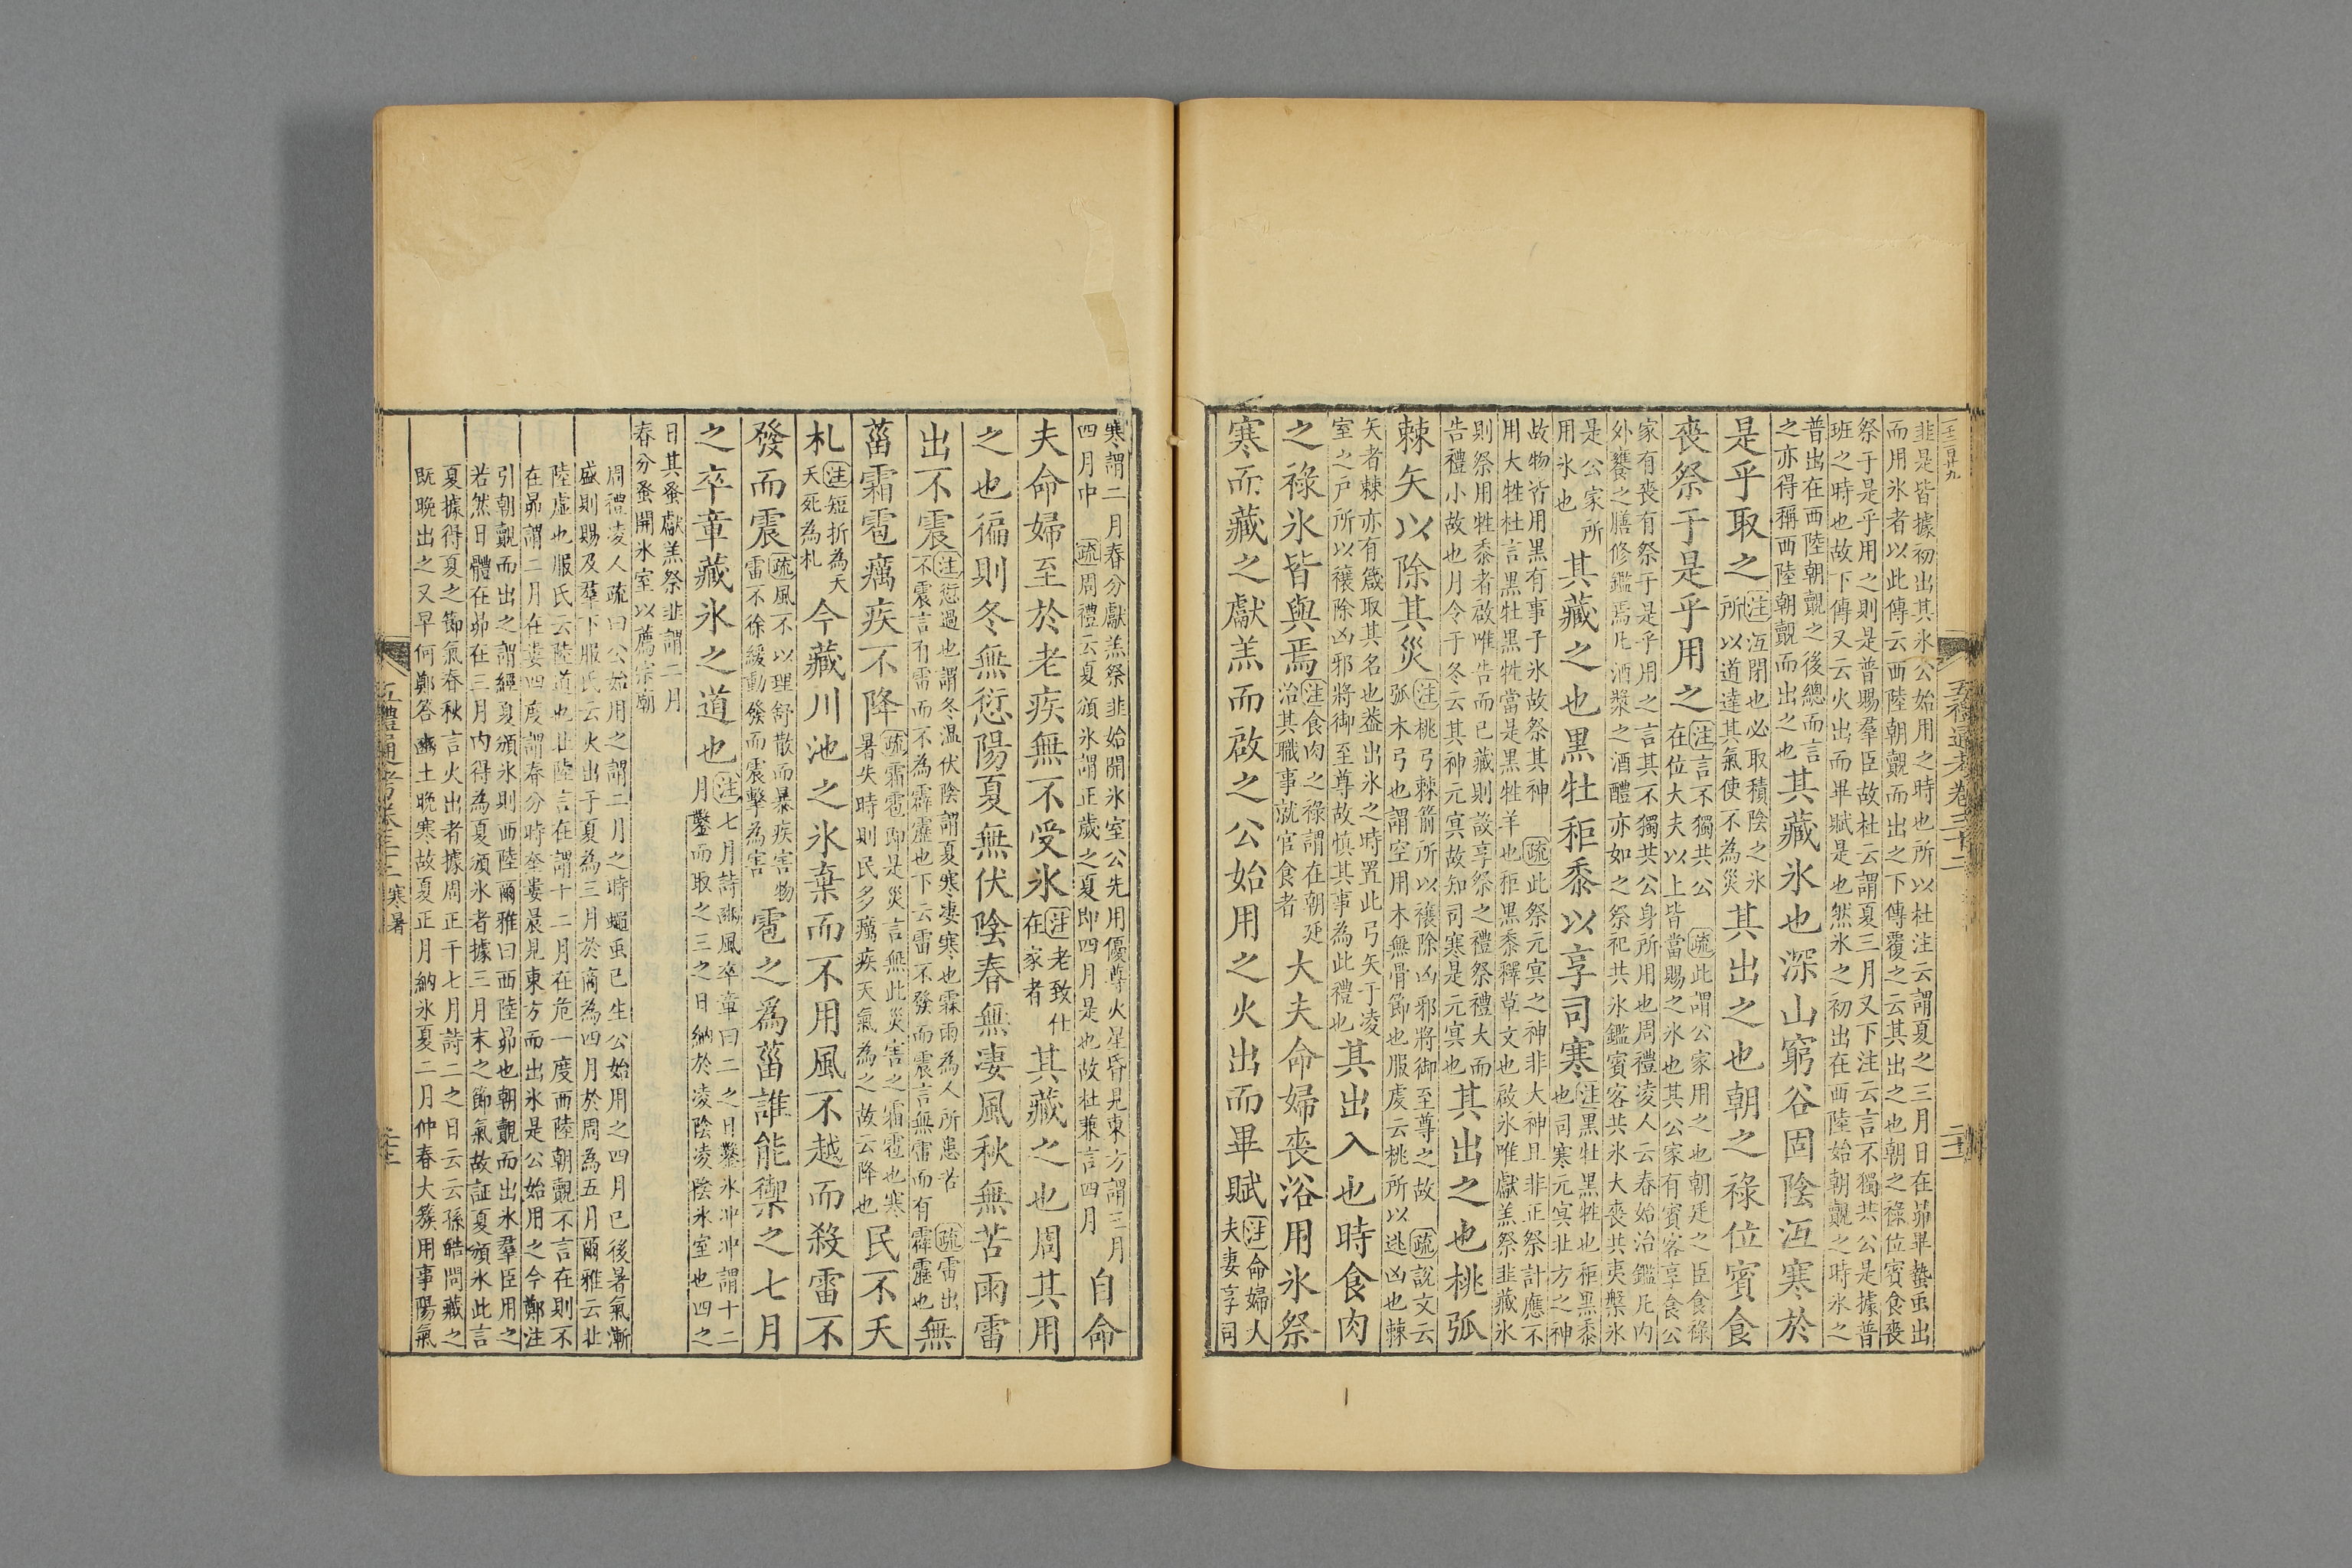 韭是皆據初出其氷公始用之時也所以杜注云謂夏之三月日在昴畢蟄虫出
而用氷者以此傳云西陸朝覿而出之下傳覆之云其出之也朝之祿位賓食喪
祭于是乎用之則是普賜羣臣故杜云謂夏三月又下注云言不獨共公是據普
班之時也故下傳又云火出而畢賦是也然氷之初出在西陸始朝覿之時氷之
普出在西陸朝覿之後總而言
之亦得稱西陸朝覿而出之也
其藏氷也深山窮谷固陰沍寒於
是乎取之
注沍閉也必取積陰之氷
所以道達其氣使不為災
其出之也朝之祿位賓食
喪祭于是乎用之
注言不獨共公
在位大夫以上皆當賜之氷也其公家有賓客享食公
疏此謂公家用之也朝廷之臣食祿
家有喪有祭于是乎用之言其不獨共公身所用也周禮凌人云春始治鑑凡内
外饔之膳修鑑焉凡酒漿之酒醴亦如之祭祀共氷鑑賓客共氷大喪共夷槃氷
是公家所
用氷也
其藏之也黑牡秬黍以享司寒
注黑牡黑牲也秬黑黍
也司寒元冥北方之神
故物皆用黑有事于氷故祭其神
疏此祭元冥之神非大神且非正祭計應不
用大牲杜言黑牡黑牲當是黑牲羊也秬黑黍釋草文也啟氷唯獻羔祭韭藏氷
則祭用牲黍者啟唯告而已藏則設享祭之禮祭禮大而
告禮小故也月令于冬云其神元冥故知司寒是元冥也
其出之也桃弧
棘矢以除其災
注桃弓棘箭所以禳除凶邪將御至尊之故
疏說文云
弧木弓也謂空用木無骨節也服虔云桃所以逃凶也棘
矢者棘亦有箴取其名也葢出氷之時置此弓矢于凌
室之戸所以禳除凶邪將御至尊故慎其事為此禮也
其出入也時食肉
之祿氷皆與焉
注食肉之祿謂在朝廷
治其職事就官食者
大夫命婦喪浴用氷祭
寒而藏之獻羔而啟之公始用之火出而畢賦
注命婦大
夫妻享司
寒謂二月春分獻羔祭韭始開氷室公先用優尊火星昏見東方謂三月
四月中
疏周禮云夏頒氷謂正歲之夏即四月是也故杜兼言四月
自命
夫命婦至於老疾無不受氷
注老致仕
在家者
其藏之也周其用
之也徧則冬無愆陽夏無伏陰春無凄風秋無苦雨雷
出不震
注愆過也謂冬温伏陰謂夏寒凄寒也霖雨為人所患苦
疏雷出
不震言有雷而不為霹靂也下云雷不發而震言無雷而有霹靂也
無
菑霜雹癘疾不降
疏霜雹即是災言無此災害之霜雹也寒
暑失時則民多癘疾天氣為之故云降也
民不夭
札
注短折為夭
夭死為札
今藏川池之氷棄而不用風不越而殺雷不
發而震
疏風不以理舒散而暴疾害物
雷不徐緩動發而震擊為害
雹之為菑誰能禦之七月
之卒章藏氷之道也
注七月詩豳風卒章曰二之日鑿氷冲冲謂十二
月鑿而取之三之日納於凌陰凌陰氷室也四之
日其蚤獻羔祭韭謂二月
春分蚤開氷室以薦宗廟
周禮凌人疏曰公始用之謂二月之時蠅虫已生公始用之四月已後暑氣漸
盛則賜及羣下服氏云火出于夏為三月於商為四月於周為五月爾雅云北
陸虚也服氏云陸道也北陸言在謂十二月在危一度西陸朝覿不言在則不
在昴謂二月在婁四度謂春分時奎婁晨見東方而出氷是公始用之今鄭注
引朝覿而出之謂經夏頒氷則西陸爾雅曰西陸昴也朝覿而出氷羣臣用之
若然日體在昴在三月内得為夏頒氷者據三月末之節氣故証夏頒氷此言
夏據得夏之節氣春秋言火出者據周正于七月詩二之日云云孫皓問藏之
既晚出之又早何鄭答豳土晚寒故夏正月納氷夏二月仲春大簇用事陽氣
五禮通考卷三十二 寒暑